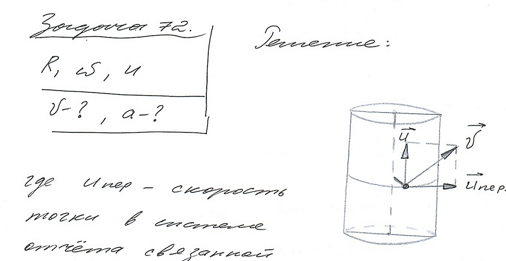 Задача 72.
Решение:
R, ω, u
v-?, a-?
u
v
uпер.
где uпер – скорость
точки в системе
отчёта связанной